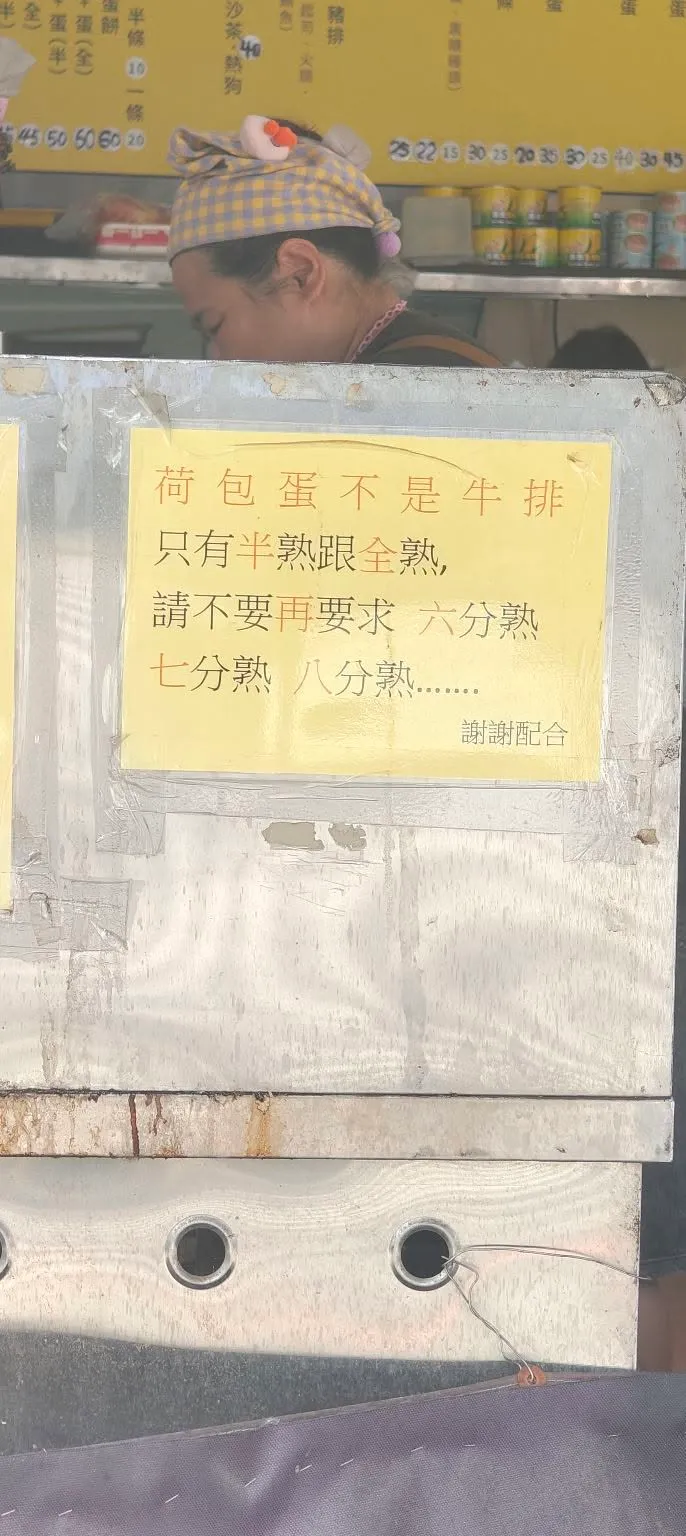 半條 10 一條 20
沙茶·熱狗 40
豬排
45 50 60 60
25 22 15 30 25 20 35 30 25 40 30 45
荷包蛋不是牛排
只有半熟跟全熟,
請不要再要求 六分熟
七分熟 八分熟.......
謝謝配合